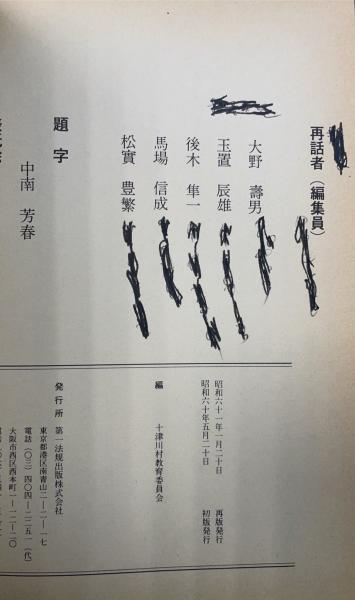 再話者（編集員）
大野 壽男
玉置 辰雄
後木 隼一
馬場 信成
松實 豊繁
題字
中南 芳春
昭和六十一年一月二十日 再版発行
昭和六十年五月二十日 初版発行
編 十津川村教育委員会
発行所 第一法規出版株式会社
東京都港区南青山二ー一一ー一七
電話（〇三）四〇四ー二二五一（代）
大阪市西区西本町一ー一二ー二〇